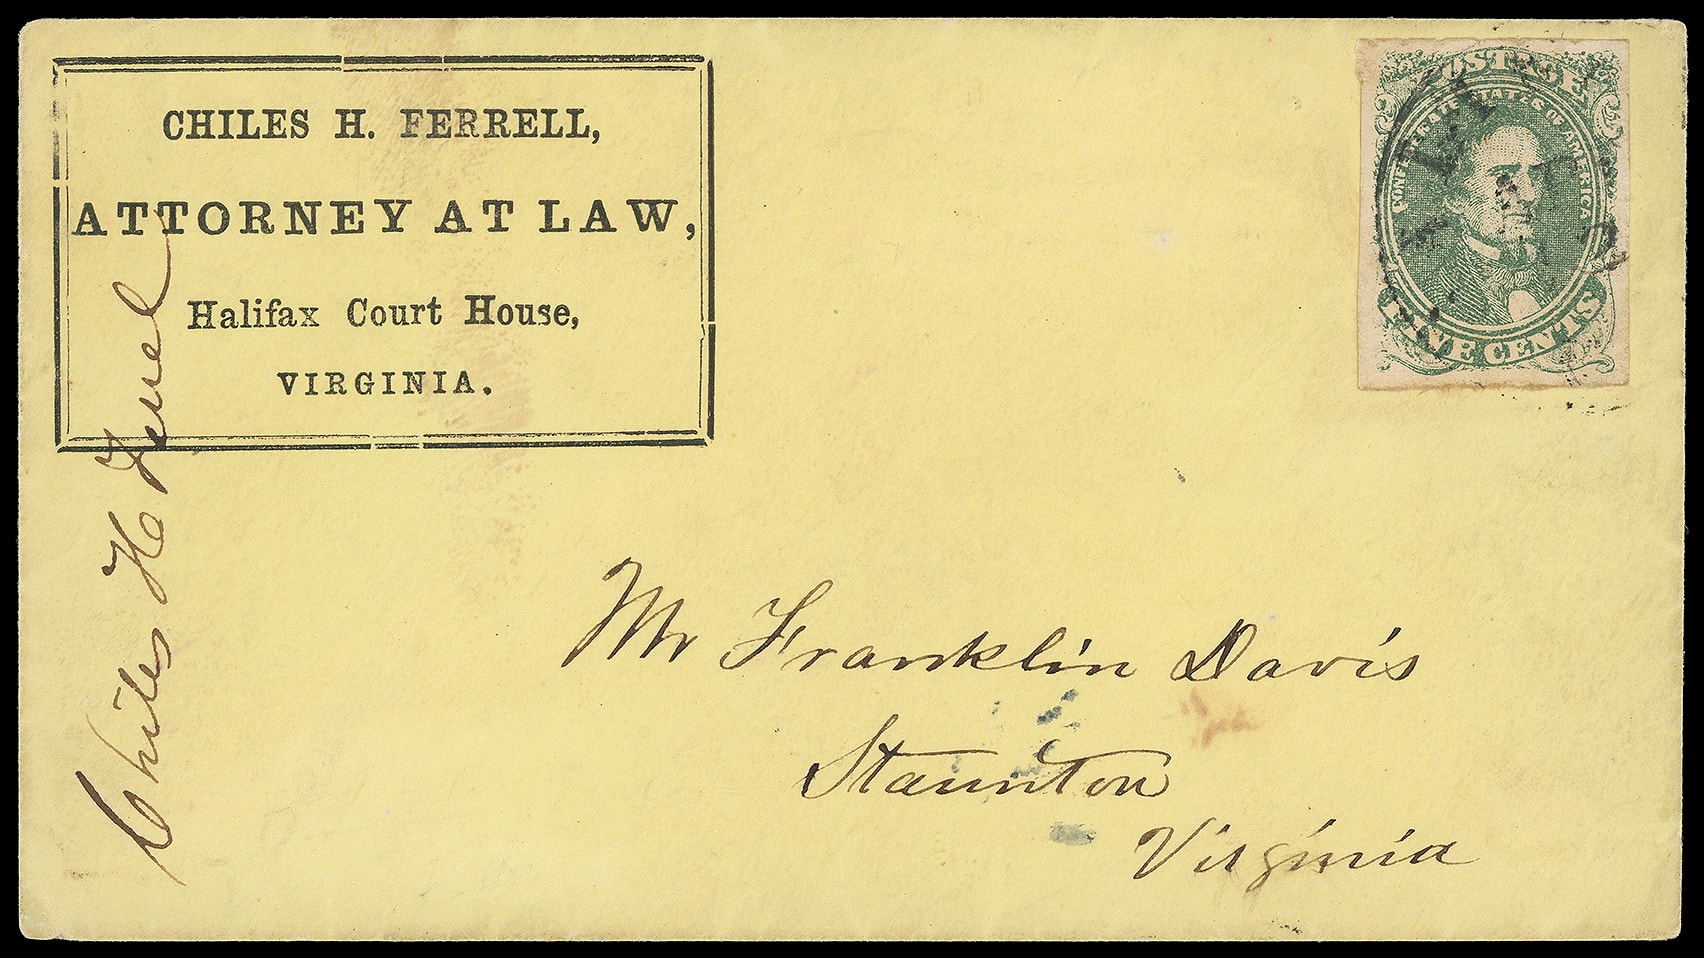 CHILES H. FERRELL,
ATTORNEY AT LAW,
Halifax Court House,
VIRGINIA.
Chiles H Ferrel
POSTAGE
CONFEDERATE STATES OF AMERICA
FIVE CENTS
Mr Franklin Davis
Staunton
Virginia